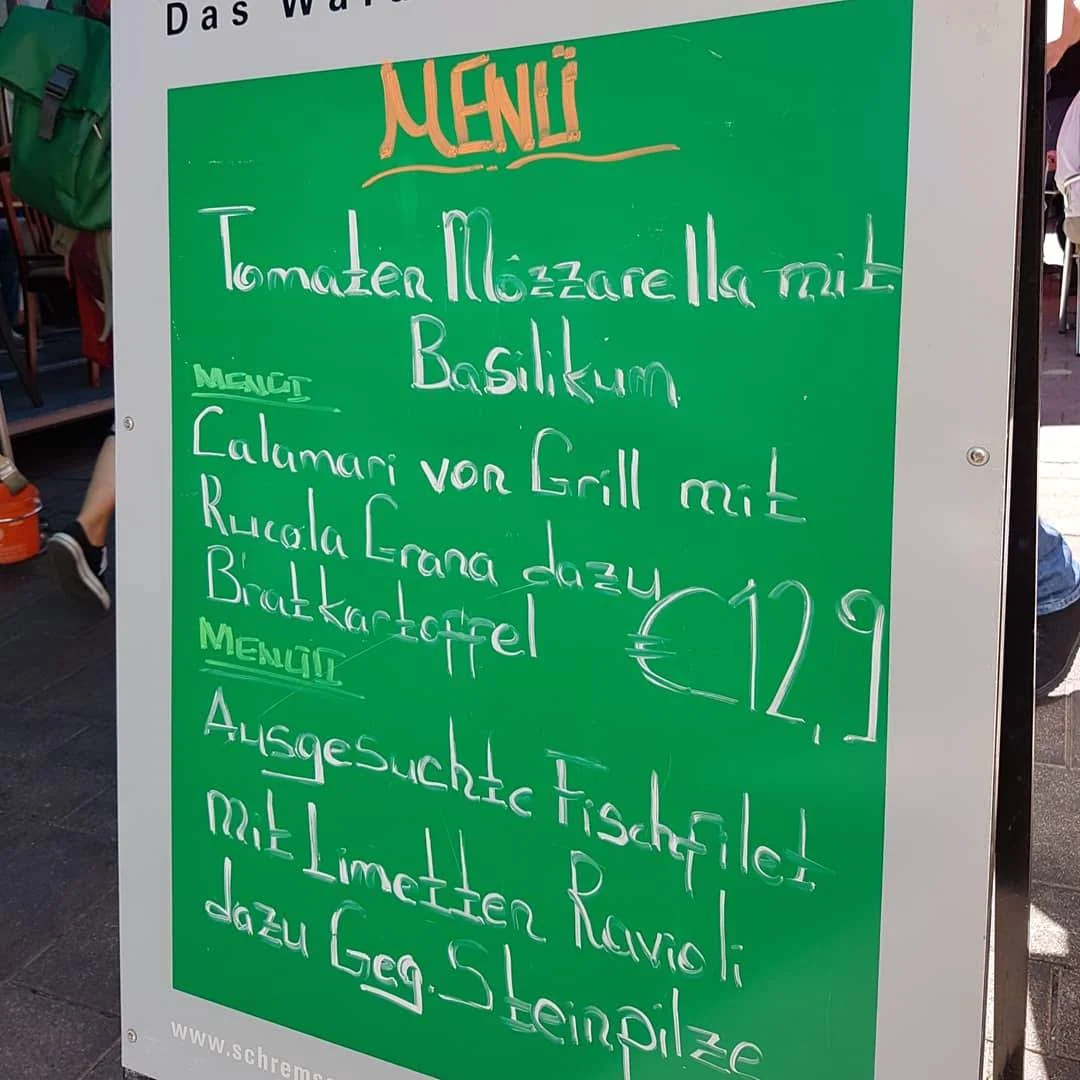 Das
MENÜ
Tomaten Mozzarella mit
Basilikum
MENÜ I
Calamari von Grill mit
Rucola Grana dazu
Bratkartoffel €12,9
MENÜ II
Ausgesuchte Fischfilet
mit Limetten Ravioli
dazu Geg. Steinpilze
www.schrems